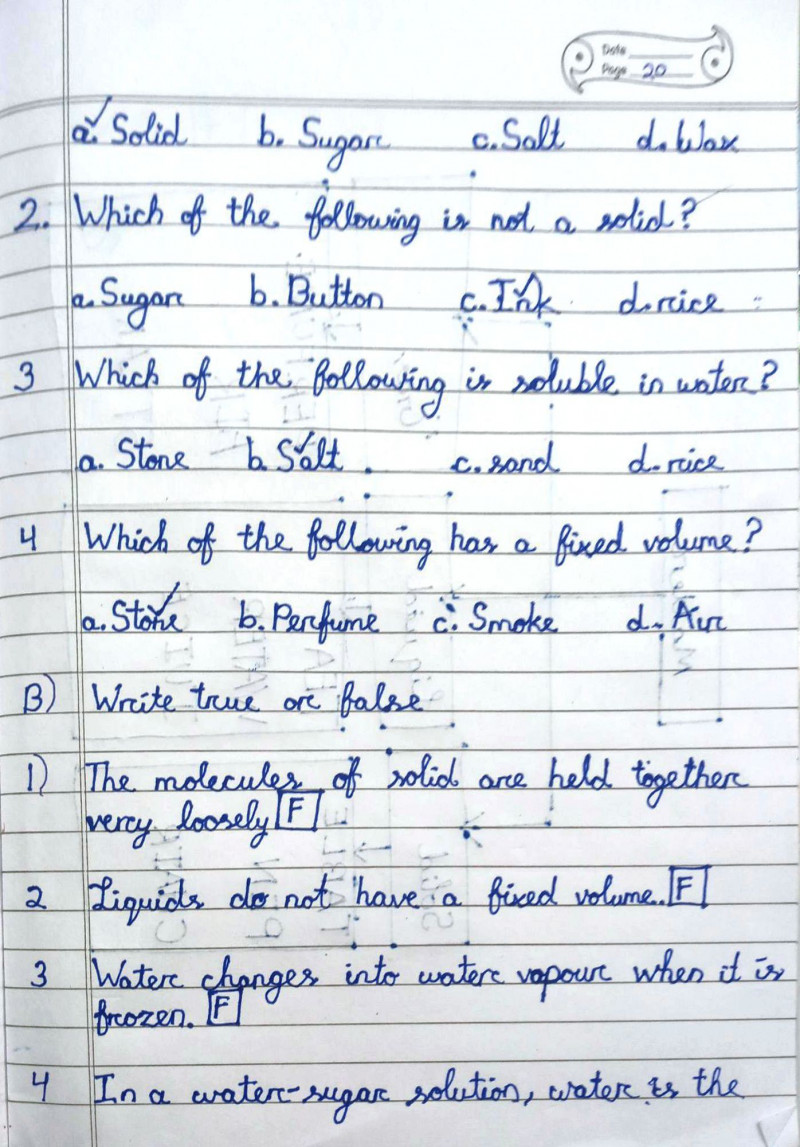 Date
Page 20
a. Solid b. Sugar c. Salt d. Wax
2. Which of the following is not a solid?
a. Sugar b. Button c. Ink d. rice
3 Which of the following is soluble in water?
a. Stone b. Salt c. sand d. rice
4 Which of the following has a fixed volume?
a. Stone b. Perfume c. Smoke d. Air
B) Write true or false
1) The molecules of solid are held together
very loosely F
2 Liquids do not have a fixed volume. F
3 Water changes into water vapour when it is
frozen. F
4 In a water-sugar solution, water is the